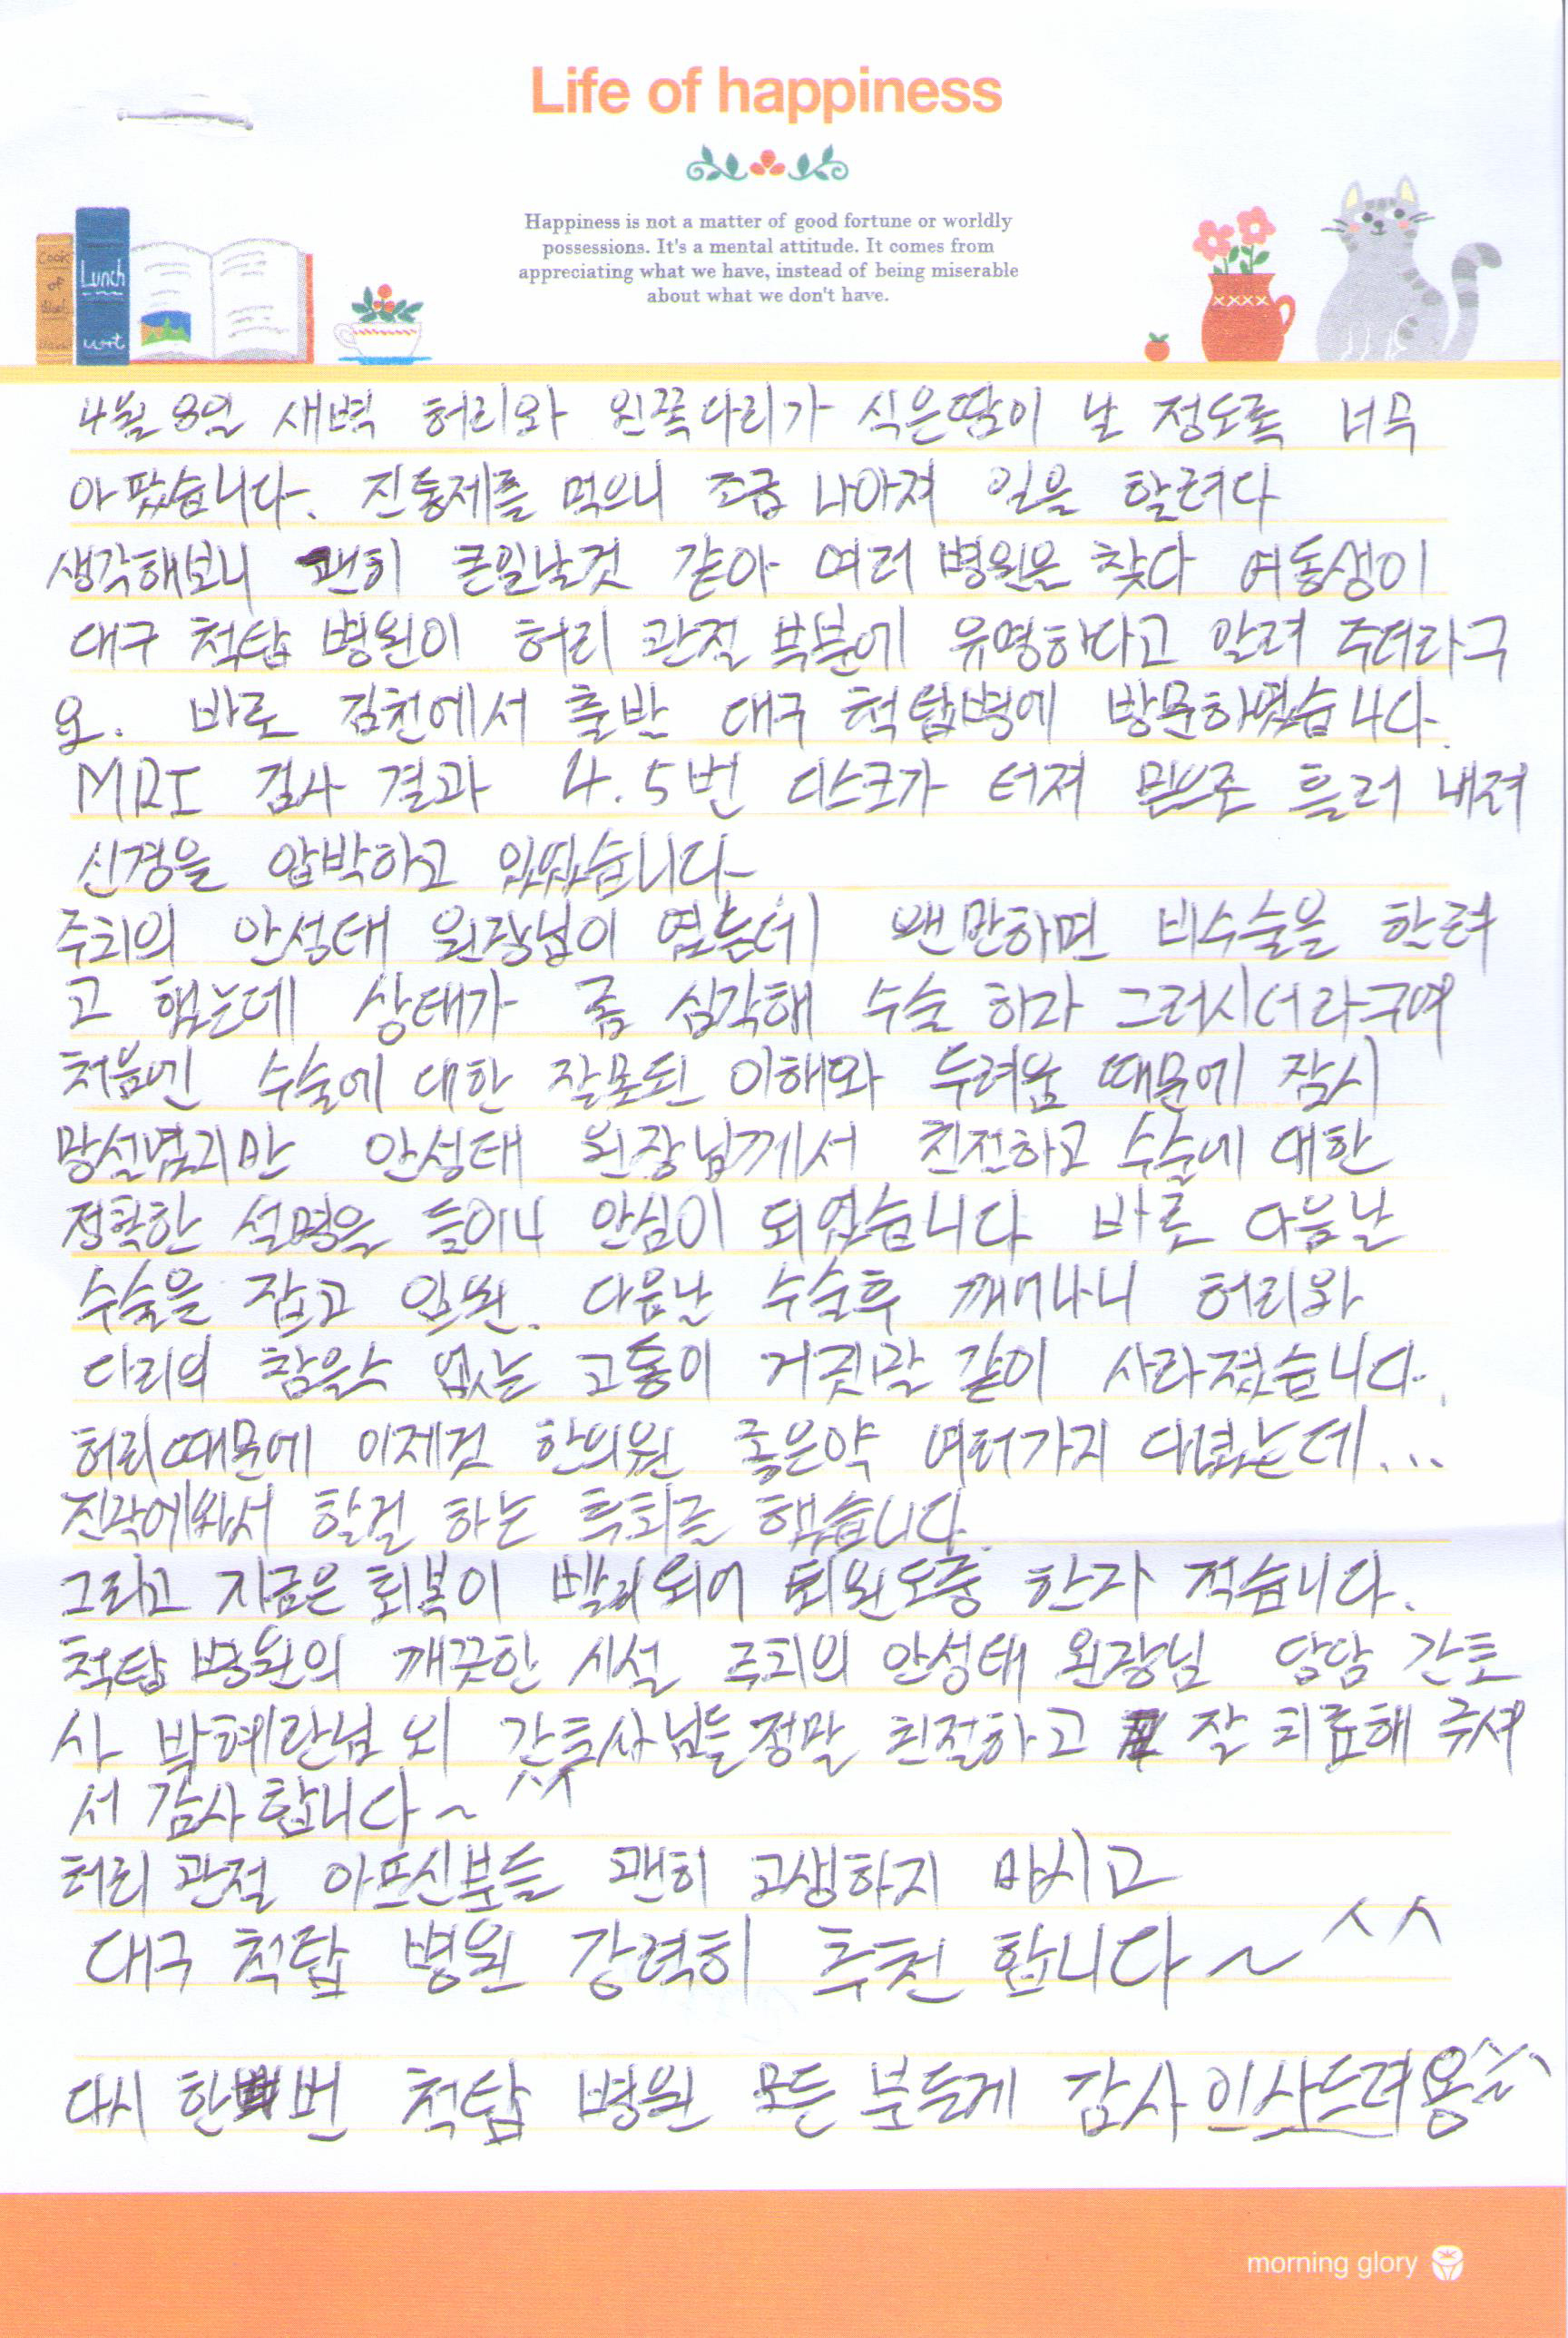 Life of happiness
Happiness is not a matter of good fortune or worldly
possessions. It's a mental attitude. It comes from
appreciating what we have, instead of being miserable
about what we don't have.
Cook
of
Lunch
4월 8일 새벽 허리와 왼쪽다리가 식은땀이 날 정도록 너무
아팠습니다. 진통제를 먹으니 조금 나아져 일을 할려다
생각해보니 괜히 큰일날것 같아 여러 병원을 찾다 여동생이
대구 척탑 병원이 허리 관절 부분에 유명하다고 알려 주더라구
요. 바로 김천에서 출발 대구 척탑병에 방문하였습니다.
MRI 검사 결과 4.5번 디스크가 터져 밑으로 흘러 내려
신경을 압박하고 있었습니다
주치의 안성태 원장님이 였는데 왠만하면 비수술을 한려
고 했는데 상태가 좀 심각해 수술 하자 그러시더라구여
처음엔 수술에 대한 잘못된 이해와 두려움 때문에 잠시
망설였지만 안성태 원장님께서 친전하고 수술에 대한
정확한 설명을 들이니 안심이 되었습니다 바로 다음날
수술을 잡고 입원. 다음날 수술후 깨어나니 허리와
다리의 참을수 없는 고통이 거짓말 같이 사라졌습니다.
허리때문에 이제것 한의원 좋은약 여러가지 다녔는데...
진작에와서 할걸 하는 후회를 했습니다.
그리고 지금은 회복이 빨리되어 퇴원도중 한자 적습니다.
척탑 병원의 깨끗한 시설 주치의 안성태 원장님 담담 간호
사 박혜란님 외 간호사님들 정말 친절하고 잘 치료해 주셔
서 감사합니다~ ^^
허리 관절 아프신분들 괜히 고생하지 마시고
대구 척탑 병원 강력히 추천 합니다~ ^^
다시 한번 척탑 병원 모든 분들게 감사인사드려용^^
morning glory